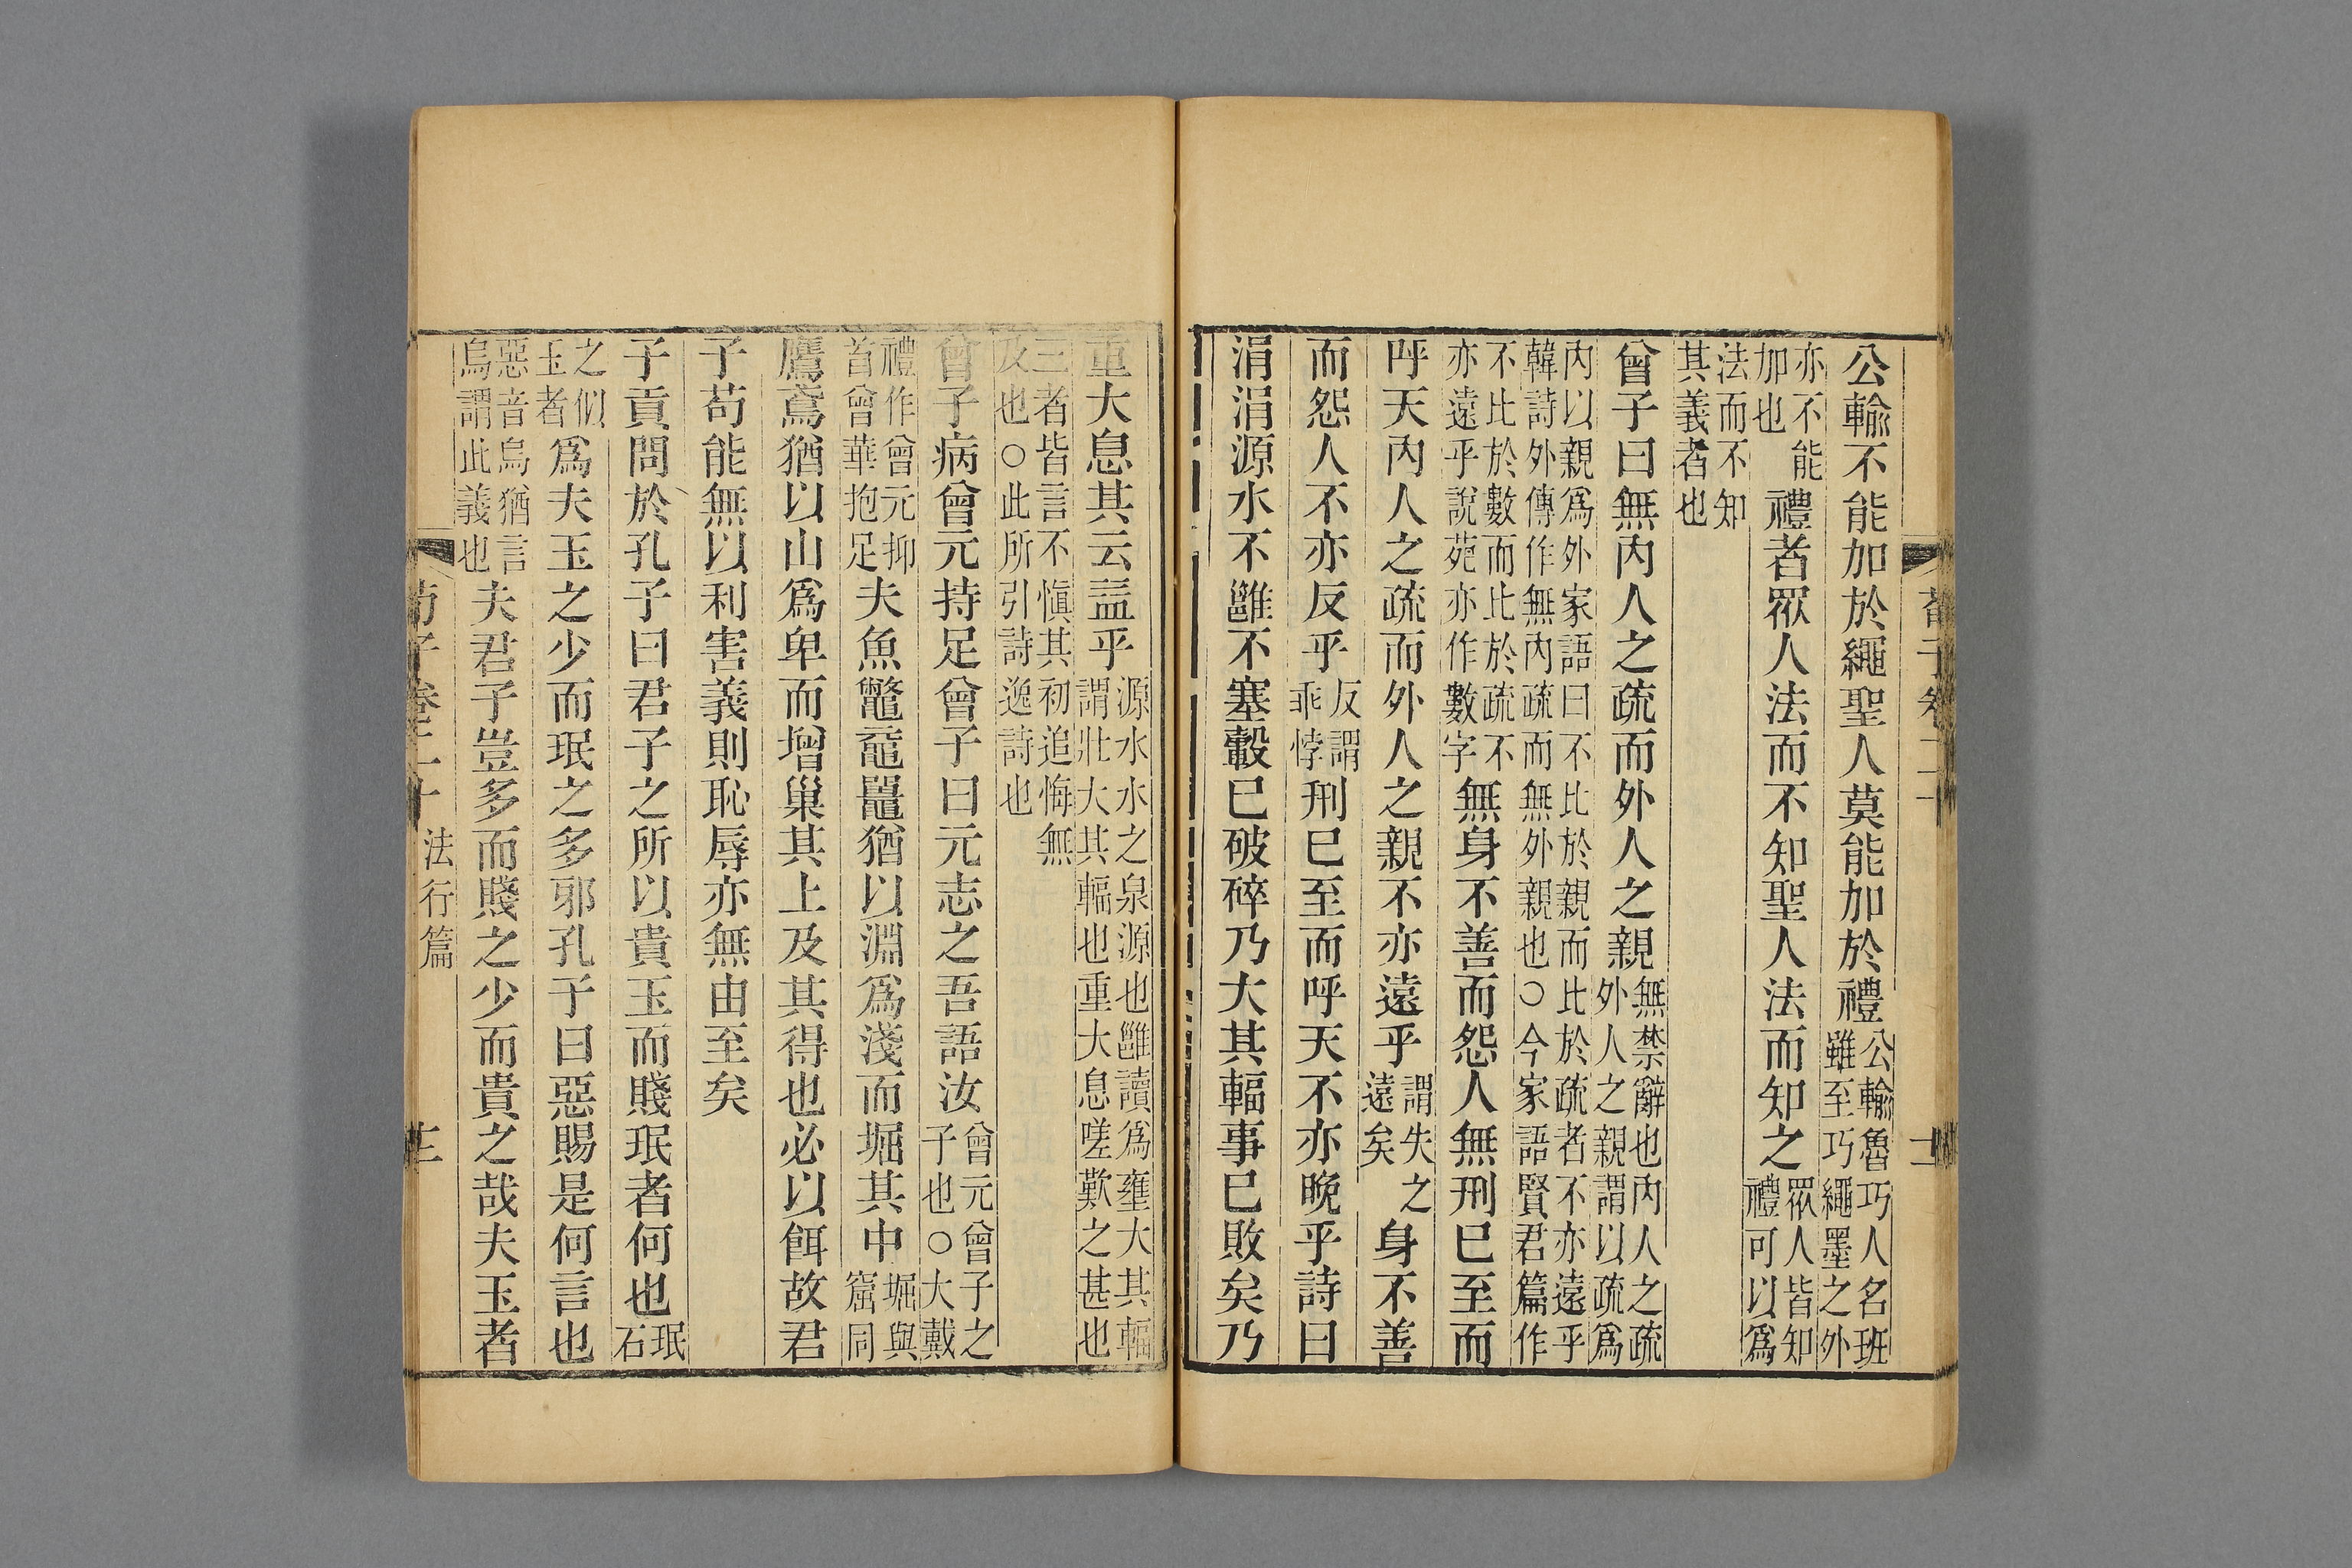 荀子卷二十
十二
公輸不能加於繩聖人莫能加於禮公輸魯巧人名班雖至巧繩墨之外
亦不能加也禮者眾人法而不知聖人法而知之眾人皆知禮可以爲
法而不知其義者也
曾子曰無內人之疏而外人之親無禁辭也內人之疏外人之親謂以疏爲
內以親爲外家語曰不比於親而比於疏者不亦遠乎韓詩外傳作無內疏而無外親也○今家語賢君篇作
不比於數而比於疏不亦遠乎說苑亦作數字無身不善而怨人無刑已至而
呼天內人之疏而外人之親不亦遠乎謂失之遠矣身不善
而怨人不亦反乎反謂乖悖刑已至而呼天不亦晚乎詩曰
涓涓源水不雝不塞轂已破碎乃大其輻事已敗矣乃
重大息其云益乎源水水之泉源也雝讀爲壅大其輻謂壯大其輻也重大息嗟歎之甚也
三者皆言不愼其初追悔無及也○此所引詩逸詩也
曾子病曾元持足曾子曰元志之吾語汝曾元曾子之子也○大戴
禮作曾元抑首曾華抱足夫魚鼈黿鼉猶以淵爲淺而堀其中堀與窟同
鷹鳶猶以山爲卑而增巢其上及其得也必以餌故君
子苟能無以利害義則恥辱亦無由至矣
子貢問於孔子曰君子之所以貴玉而賤珉者何也珉石
之似玉者爲夫玉之少而珉之多邪孔子曰惡賜是何言也
惡音烏猶言烏謂此義也夫君子豈多而賤之少而貴之哉夫玉者
荀子卷二十
法行篇
十三